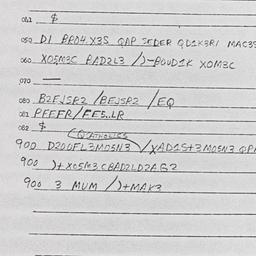 041 $
050 DI PP04.X35 QAP SEDER QD1K3R1 MAC35
060 XO5M3C PAD2L3 /)-POUD1K XOM3C
070 —
080 B2FJSP2 /BEJSP2 /EQ
081 PFEFR/FE5..LR
082 $
(CATHOLICS
900 D200FL3MO5N3 /XAD1S+3MO5N3 QPA
900 )+XO5M3.CBAD2LD2AG2
900 3 MUM /)+MAX3